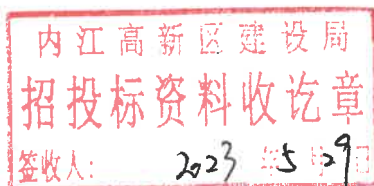 内江高新区建设局
招投标资料收讫章
签收人: 2023年5月29日